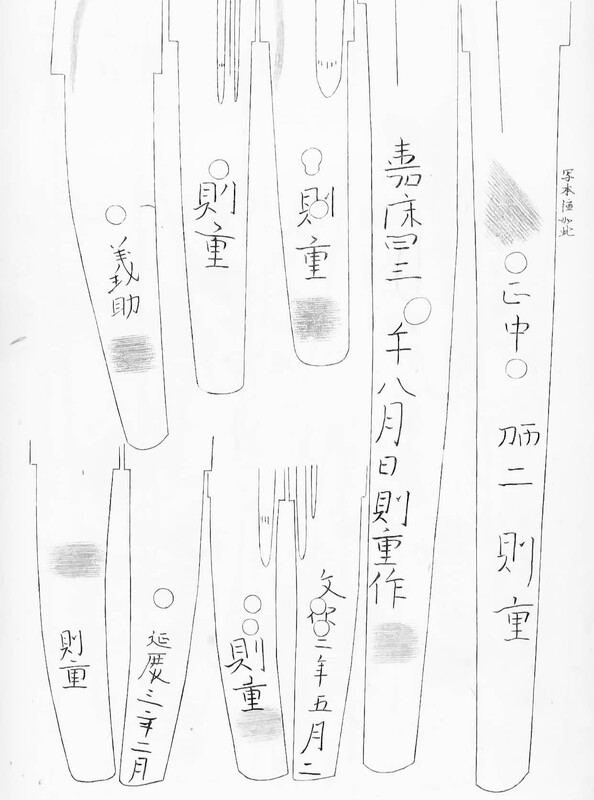 写本 如此
正中 二 則重
嘉 四三 年八月日則重作
則重
則重
義助
文保二年五月二
則重
延慶三年二月
則重